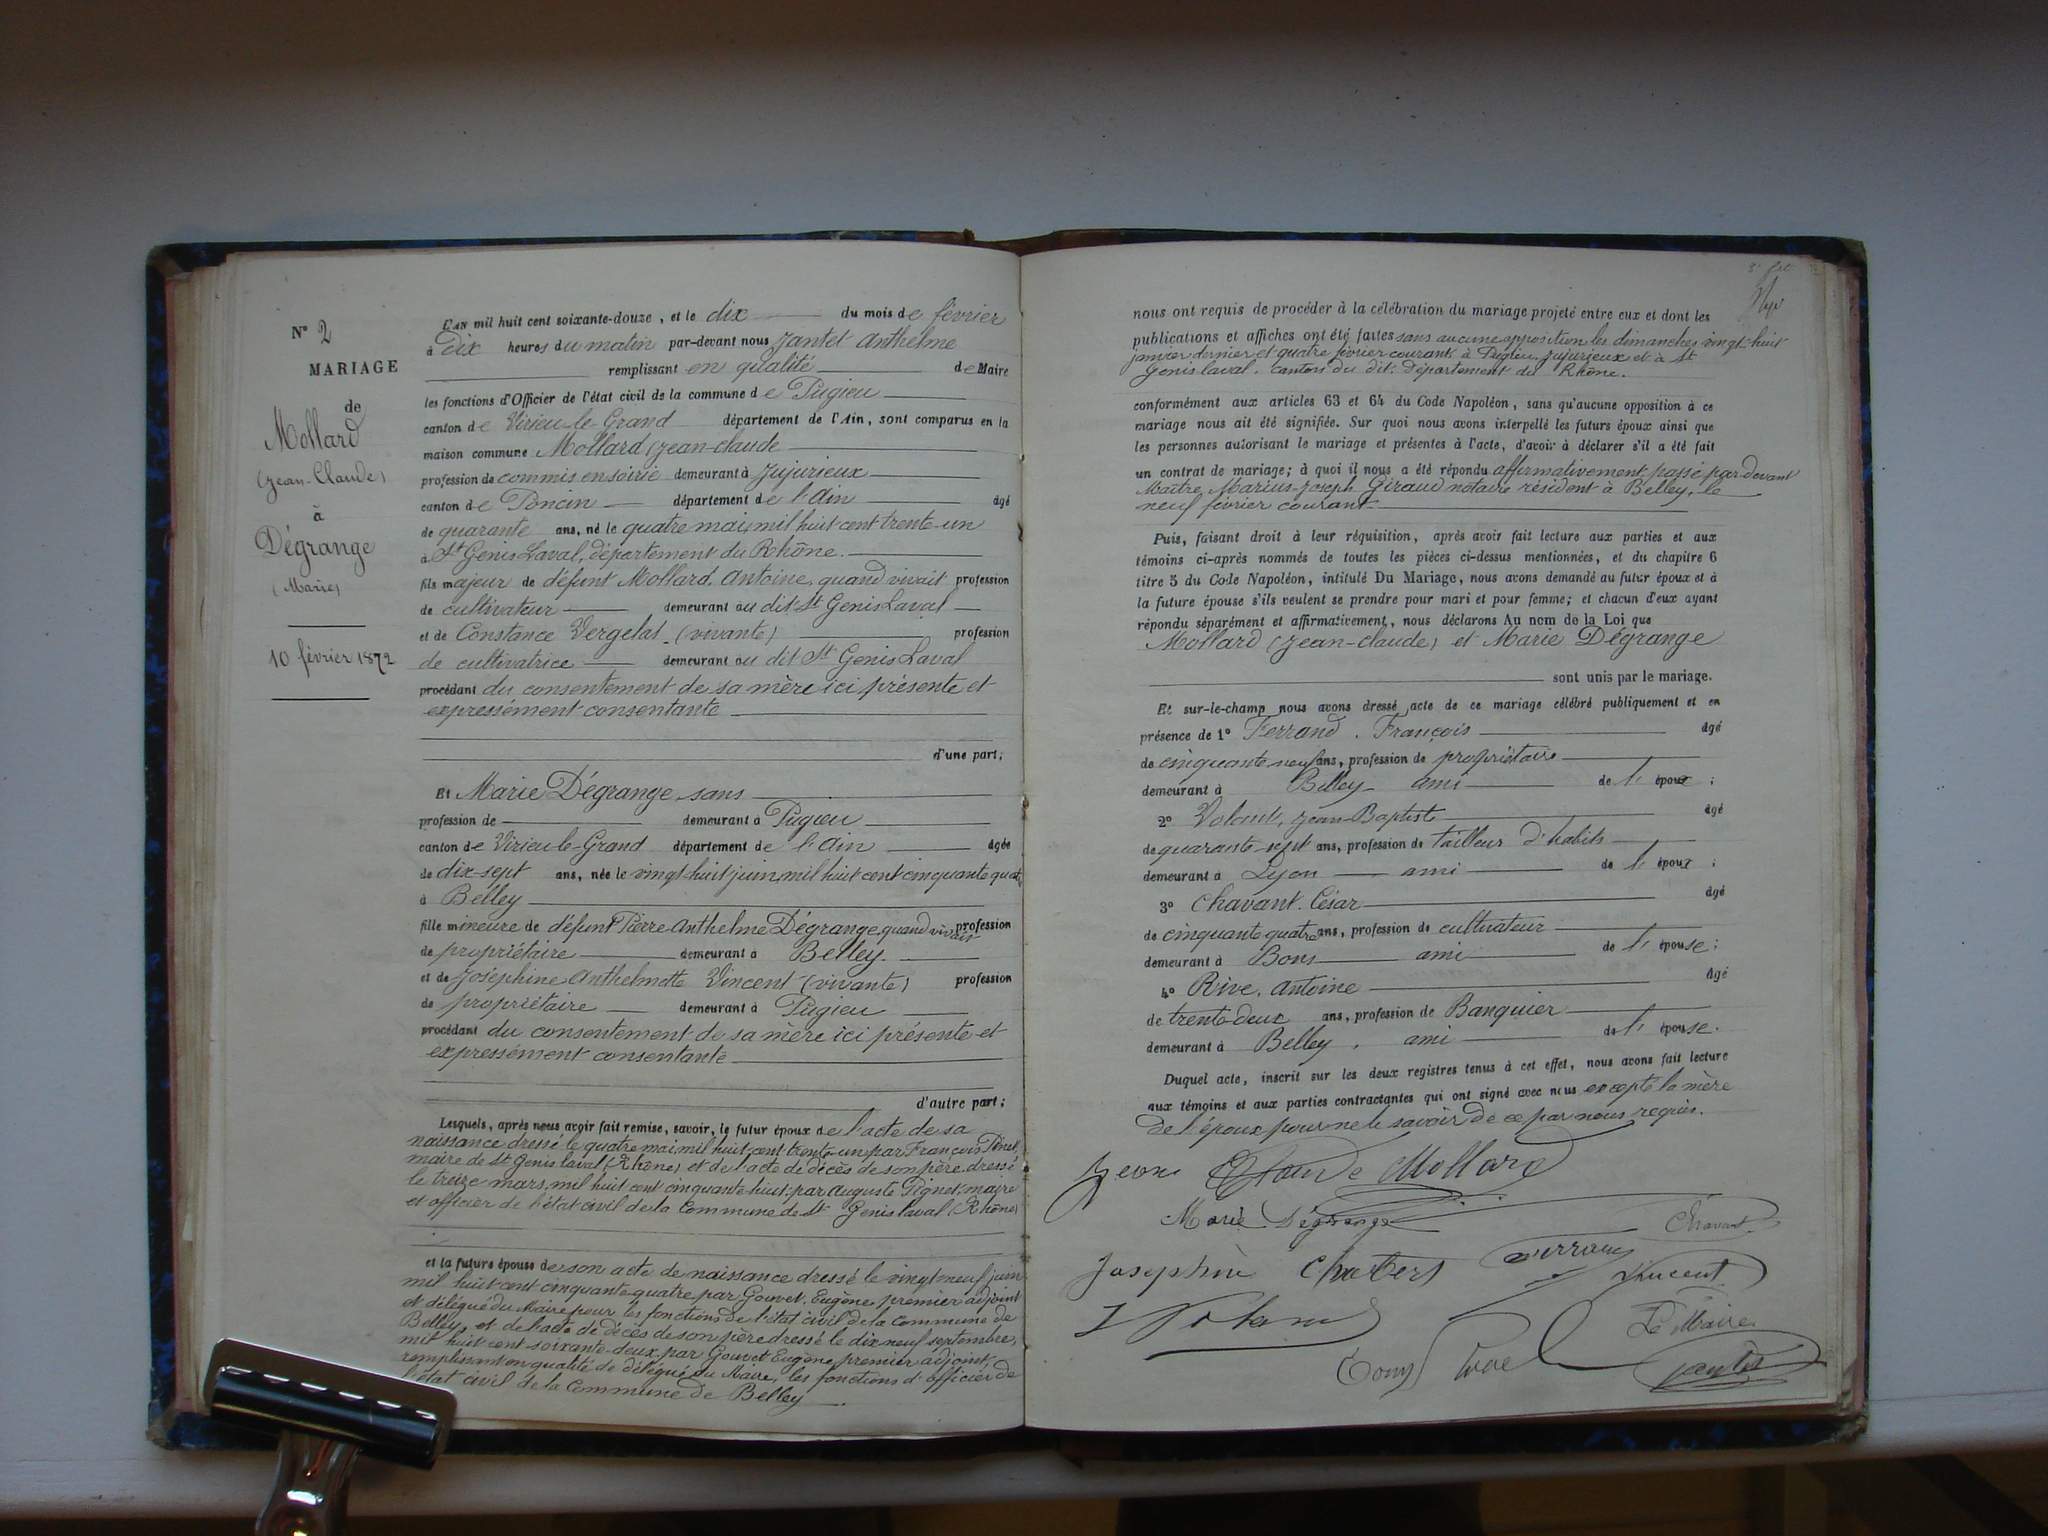 N° 2
MARIAGE
de
Mollard
(Jean-Claude)
à
Dégrange
(Marie)
10 février 1872
L'AN mil huit cent soixante-douze, et le dix du mois de février
à Dix heures du matin par-devant nous Jantet Anthelme
remplissant en qualité de Maire
les fonctions d'Officier de l'état civil de la commune de Pugieu
canton de Virieu-le-Grand département de l'Ain, sont comparus en la
maison commune Mollard (Jean-Claude
profession de commis en soirie demeurant à Jujurieux
canton de Poncin département de l'Ain âgé
de quarante ans, né le quatre mai, mil huit cent trente-un
à St Genis Laval, département du Rhône.
fils majeur de défunt Mollard, Antoine, quand vivait profession
de cultivateur demeurant au dit St Genis Laval
et de Constance Vergelas (vivante) profession
de cultivatrice demeurant au dit St Genis Laval
procédant du consentement de sa mère ici présente et
expressément consentante
d'une part;
Et Marie Dégrange sans
profession de demeurant à Pugieu
canton de Virieu-le-Grand département de l'Ain âgée
de dix-sept ans, née le vingt-huit juin, mil huit cent cinquante quatre
à Belley
fille mineure de défunt Pierre-Anthelme Dégrange, quand vivait profession
de propriétaire demeurant à Belley.
et de Joséphine Anthelmette Vincent (vivante) profession
de propriétaire demeurant à Pugieu
procédant du consentement de sa mère ici présente et
expressément consentante
d'autre part;
Lesquels, après nous avoir fait remise, savoir, le futur époux de l'acte de sa
naissance dressé le quatre mai, mil huit cent trente-un par François
maire de St Genis laval (Rhône) et de l'acte de décès de son père dressé
le treize mars, mil huit cent cinquante-huit, par Auguste Pignet, maire
et officier de l'état civil de la Commune de St Genis laval (Rhône)
et la future épouse de son acte de naissance dressé le vingt neuf juin
mil huit cent cinquante quatre par Gouvet, Eugène, premier adjoint
et délégué du Maire pour les fonctions de l'état civil de la Commune de
Belley, et de l'acte de décès de son père dressé le dix neuf septembre,
mil huit cent soixante-deux par Gouvet Eugène, premier adjoint,
remplissant en qualité de délégué du Maire, les fonctions d'officier de
l'état civil de la Commune de Belley
nous ont requis de procéder à la célébration du mariage projeté entre eux et dont les
publications et affiches ont été faites sans aucune opposition les dimanches vingt-huit
janvier dernier et quatre février courant à Pugieu, Jujurieux et à St
Genis laval, canton du dit, Département du Rhône.
conformément aux articles 63 et 64 du Code Napoléon, sans qu'aucune opposition à ce
mariage nous ait été signifiée. Sur quoi nous avons interpellé les futurs époux ainsi que
les personnes autorisant le mariage et présentes à l'acte, d'avoir à déclarer s'il a été fait
un contrat de mariage; à quoi il nous a été répondu affirmativement, passé par-devant
Maître Marius-Joseph Giraud notaire résident à Belley, le
neuf février courant.
Puis, faisant droit à leur réquisition, après avoir fait lecture aux parties et aux
témoins ci-après nommés de toutes les pièces ci-dessus mentionnées, et du chapitre 6
titre 5 du Code Napoléon, intitulé Du Mariage, nous avons demandé au futur époux et à
la future épouse s'ils veulent se prendre pour mari et pour femme; et chacun d'eux ayant
répondu séparément et affirmativement, nous déclarons Au nom de la Loi que
Mollard (Jean-Claude) et Marie Dégrange
sont unis par le mariage.
Et sur-le-champ nous avons dressé acte de ce mariage célébré publiquement et en
présence de 1° Ferrand, François âgé
de cinquante neuf ans, profession de propriétaire
demeurant à Belley ami de l'époux;
2° Volant, Jean-Baptiste âgé
de quarante-sept ans, profession de tailleur d'habits
demeurant à Lyon ami de l'époux;
3° Chavant, César âgé
de cinquante quatre ans, profession de cultivateur
demeurant à Bons ami de l'épouse;
4° Rive, Antoine âgé
de trente-deux ans, profession de Banquier
demeurant à Belley, ami de l'épouse.
Duquel acte, inscrit sur les deux registres tenus à cet effet, nous avons fait lecture
aux témoins et aux parties contractantes qui ont signé avec nous excepté la mère
de l'époux pour ne le savoir de ce par nous requis.
Jean Claude Mollard
Marie Dégrange Chavant
Joséphine Chabert Ferrand Vincent
Volant Le Maire
Rive Jantet